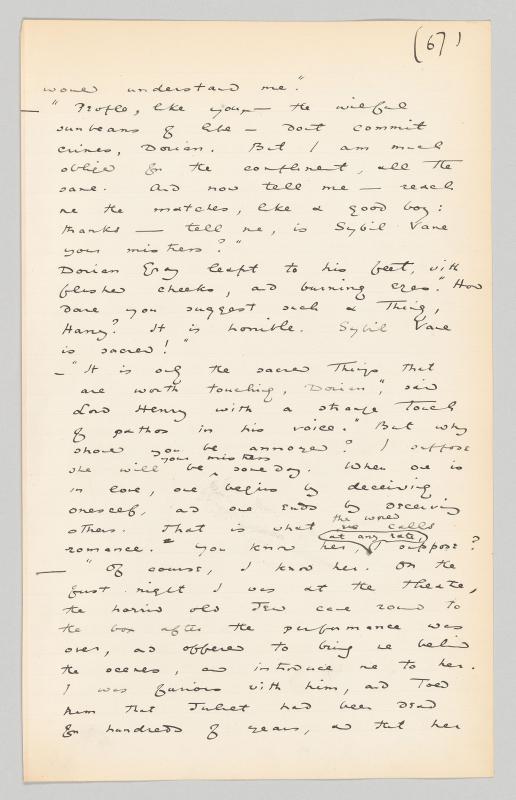 (67)
would understand me."
"People, like you — the wilful
sunbeams of life — don't commit
crimes, Dorian. But I am much
obliged for the compliment, all the
same. And now tell me — reach
me the matches, like a good boy:
thanks — tell me, is Sybil Vane
your mistress?"
Dorian Gray leapt to his feet, with
flushed cheeks, and burning eyes. "How
dare you suggest such a thing,
Harry? It is horrible. Sybil Vane
is sacred!"
— "It is only the sacred things that
are worth touching, Dorian", said
Lord Henry with a strange touch
of pathos in his voice. "But why
should you be annoyed? I suppose
your mistress
she will be ^ some day. When one is
in love, one begins by deceiving
oneself, and one ends by deceiving
others. That is what the world calls
romance. You know her, at any rate, I suppose?
— "Of course, I know her. On the
first night I was at the theatre,
the horrid old Jew came round to
the box after the performance was
over, and offered to bring me behind
the scenes, and introduce me to her.
I was furious with him, and told
him that Juliet had been dead
for hundreds of years, and that her